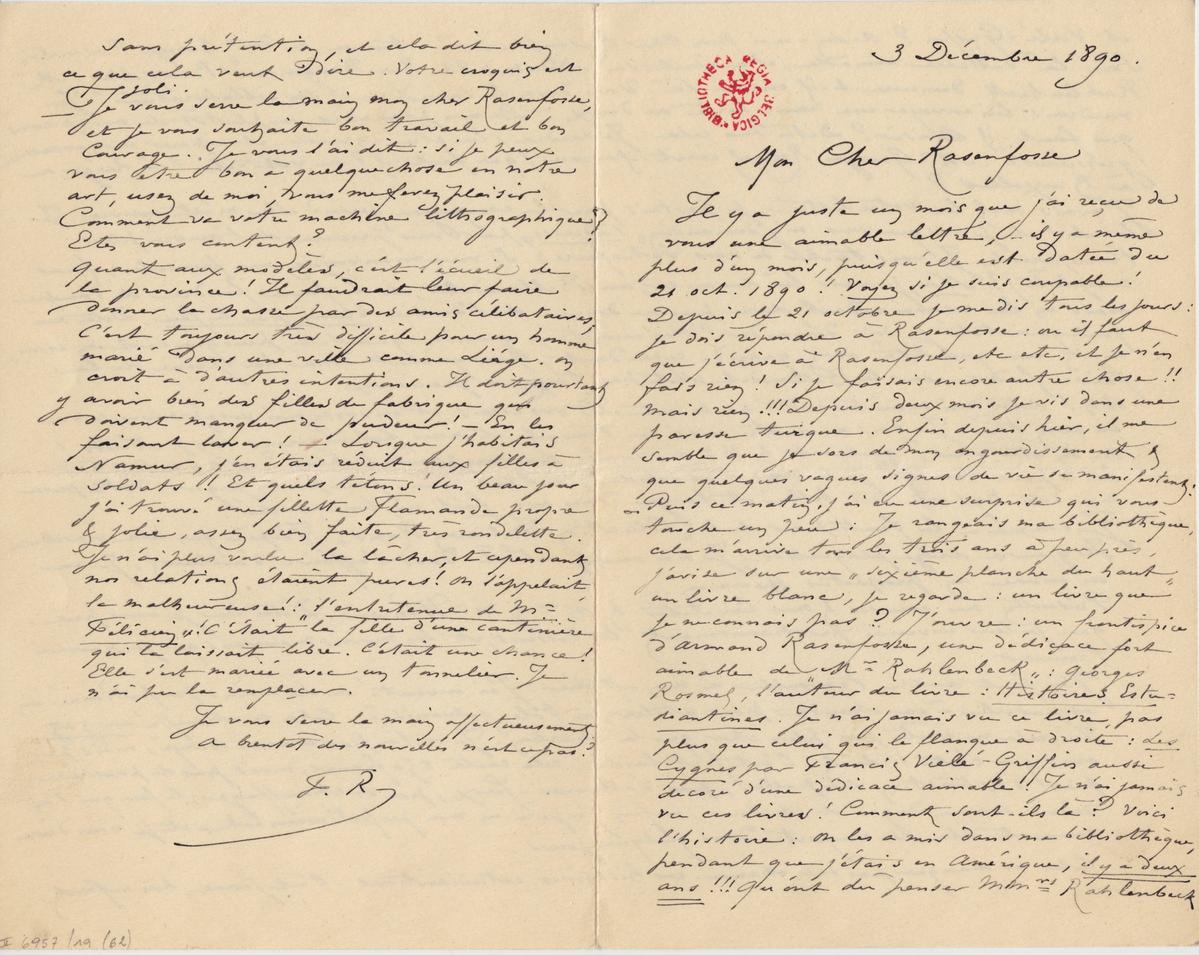 3 Décembre 1890.
BIBLIOTHECA REGIA BELGICA
Mon Cher Rasenfosse
Il y a juste un mois que j'ai reçu de
vous une aimable lettre, – il y a même
plus d'un mois, puisqu'elle est datée du
21 oct. 1890 ! Voyez si je suis coupable !
Depuis le 21 octobre je me dis tous les jours :
je dois répondre à Rasenfosse : ou il faut
que j'écrive à Rasenfosse, etc etc, et je n'en
fais rien ! Si je faisais encore autre chose !!
mais rien !!! Depuis deux mois je vis dans une
paresse turque. Enfin depuis hier, il me
semble que je sors de mon engourdissement &
que quelques vagues signes de vie se manifestent !
– Puis ce matin, j'ai eu une surprise qui vous
touche un peu : Je rangeais ma bibliothèque,
cela m'arrive tous les trois ans à peu près,
j'avise sur une „sixième planche du haut„
un livre blanc, je regarde : un livre que
je ne connais pas ? J'ouvre : un frontispice
d'Armand Rasenfosse, une dédicace fort
aimable de Mr Rahlenbeck„ : Georges
Rosmel, l'auteur du livre : Histoires Estu-
diantines. Je n'ai jamais vu ce livre, pas
plus que celui qui le flanque à droite : Les
Cygnes par Francis Vielé-Griffin aussi
décoré d'une dédicace aimable ! Je n'ai jamais
vu ces livres ! Comment sont-ils là ? Voici
l'histoire : On les a mis dans ma bibliothèque,
pendant que j'étais en Amérique, il y a deux
ans !!! Qu'ont dû penser Mmrs Rahlenbeck
Sans prétention, et cela dit bien
ce que cela veut dire. Votre croquis est
joli.
– Je vous serre la main mon cher Rasenfosse,
et je vous souhaite bon travail et bon
courage. Je vous l'ai dit : si je peux
vous être bon à quelquechose en notre
art, usez de moi, vous me ferez plaisir.
Comment va votre machine lithographique ?
Etes vous content ?
Quant aux modèles, c'est l'écueil de
la province ! Il faudrait leur faire
donner la chasse par des amis célibataires,
C'est toujours très difficile pour un homme
marié dans une ville comme Liége. on
croit à d'autres intentions. Il doit pourtant
y avoir bien des filles de fabrique qui
doivent manquer de pudeur ! – En les
faisant laver ! – Lorsque j'habitais
Namur, j'en étais réduit aux filles à
soldats ! Et quels tétons ! Un beau jour
j'ai trouvé une fillette Flamande propre
& jolie, assez bien faite, très rondelette.
Je n'ai plus voulu la lâcher, et cependant
nos relations étaient pures ! On l'appelait
la malheureuse ! : „l'entretenue de Mr
Félicien„ ! C'était la fille d'une cantinière
qui la laissait libre. C'était une chance !
Elle s'est mariée avec un tonnelier. Je
n'ai pu la remplacer.
Je vous serre la main affectueusement
a bientot des nouvelles n'est ce pas ?
F. R
II 6957/19 (62)